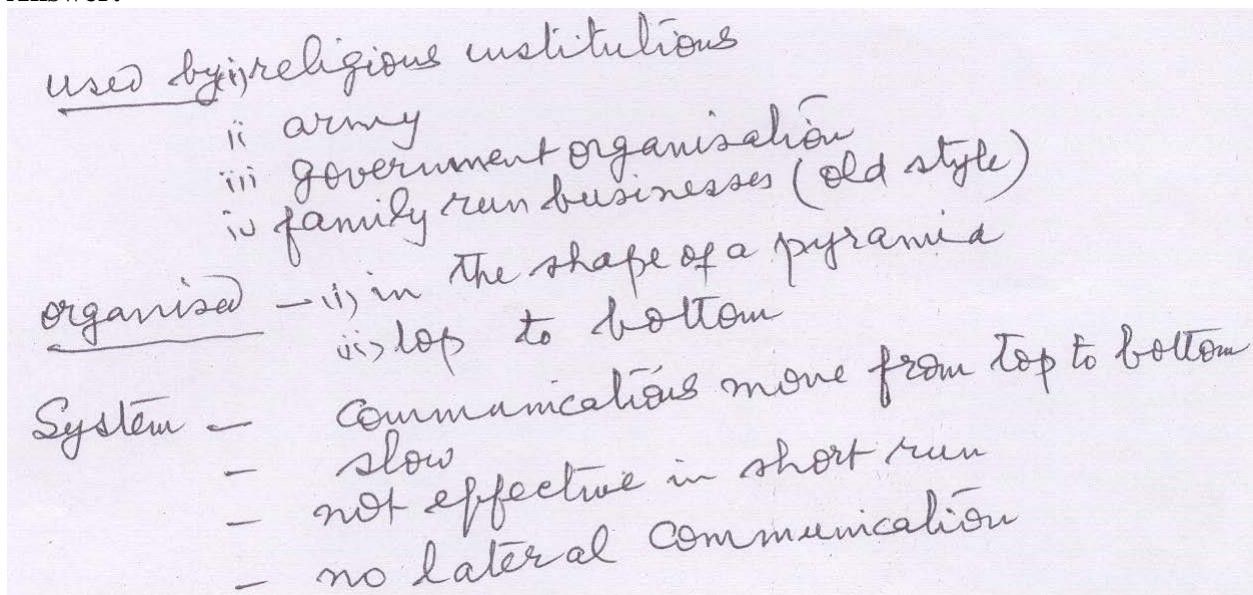 used by (i) religious institutions
ii army
iii government organisation
iv family run businesses (old style)
organised - (i) in the shape of a pyramid
(ii) top to bottom
System - communications move from top to bottom
- slow
- not effective in short run
- no lateral communication